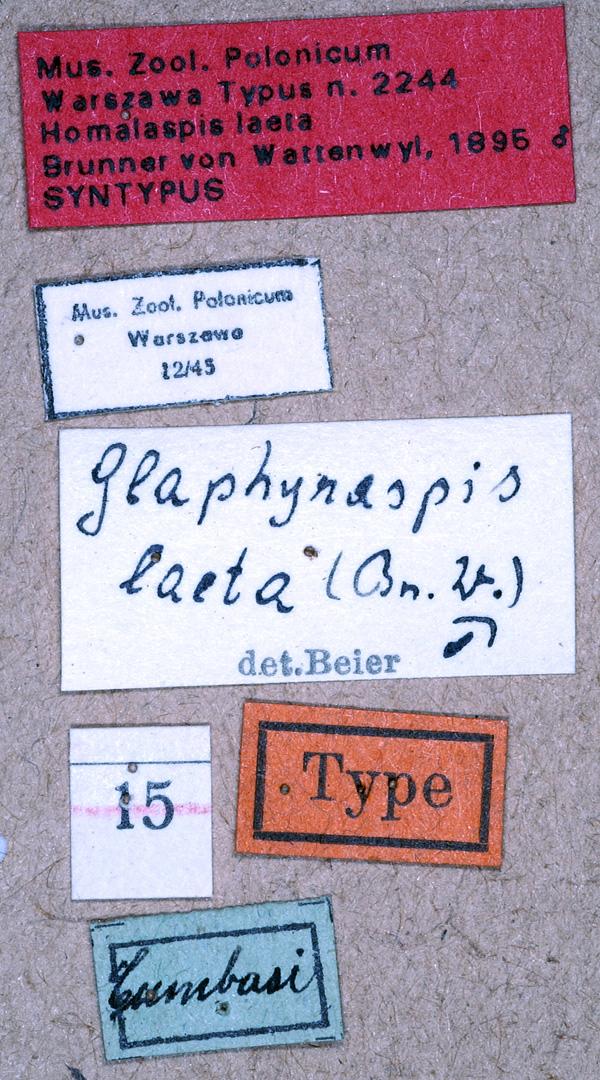 Mus. Zool. Polonicum
Warszawa Typus n. 2244
Homalaspis laeta
Brunner von Wattenwyl, 1895 ♂
SYNTYPUS
Mus. Zool. Polonicum
Warszawa
12/45
Glaphyraspis
laeta (Br. W.)
♂
det. Beier
15
Type
Cumbasi